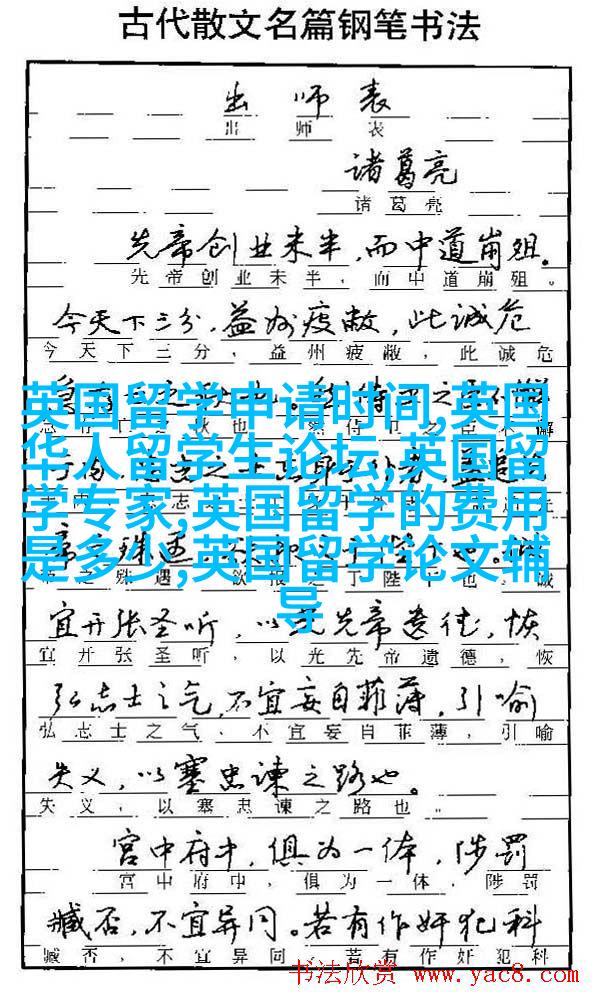 古代散文名篇钢笔书法
出师表
出师表
诸葛亮
诸葛亮
先帝创业未半，而中道崩殂。
先帝创业未半，而中道崩殂。
今天下三分，益州疲敝，此诚危
今天下三分，益州疲敝，此诚危
英国留学申请时间,英国
华人留学生论坛,英国留
学专家,英国留学的费用
是多少,英国留学论文辅
导
宜开张圣听，以光先帝遗德，恢
宜开张圣听，以光先帝遗德，恢
弘志士之气，不宜妄自菲薄，引喻
弘志士之气，不宜妄自菲薄，引喻
失义，以塞忠谏之路也。
失义，以塞忠谏之路也。
宫中府中，俱为一体，陟罚
宫中府中，俱为一体，陟罚
臧否，不宜异同。若有作奸犯科
臧否，不宜异同。若有作奸犯科
书法欣赏 www.yac8.com